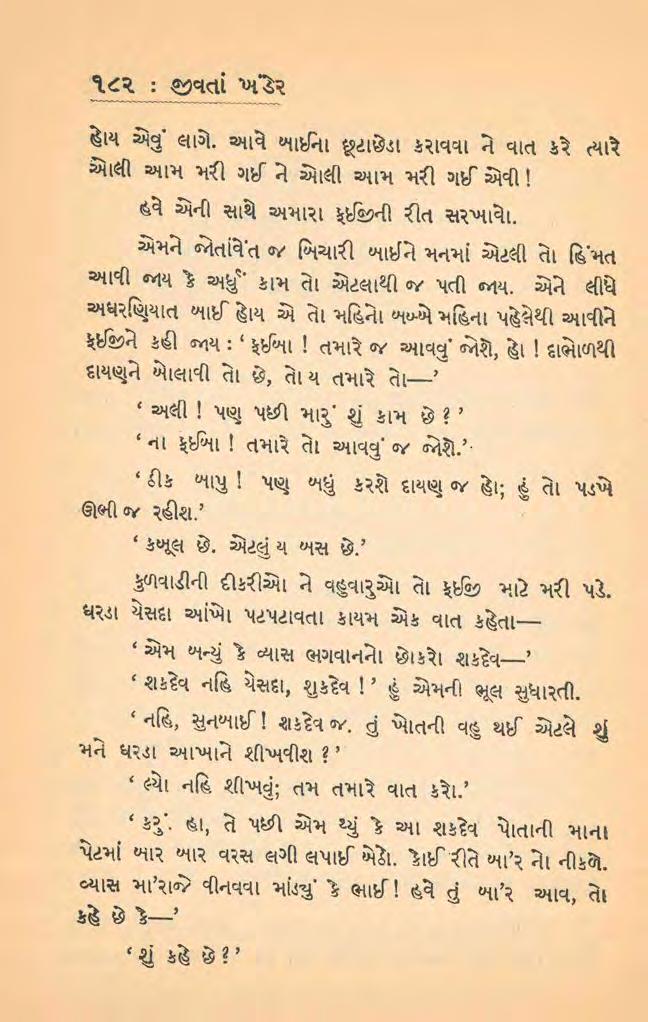 ૧૮૨ : જીવતાં ખંડેર
હોય એવું લાગે. આવે બાઈના છૂટાછેડા કરાવવા ને વાત કરે ત્યારે
ઓલી આમ મરી ગઈ ને ઓલી આમ મરી ગઈ એવી !
હવે એની સાથે અમારા ફઈજીની રીત સરખાવો.
એમને જોતાંવેંત જ બિચારી બાઈને મનમાં એટલી તો હિંમત
આવી જાય કે અર્ધું કામ તો એટલાથી જ પતી જાય. એને લીધે
અધરણિયાત બાઈ હોય એ તો મહિનો બબ્બે મહિના પહેલેથી આવીને
ફઈજીને કહી જાય : ‘ ફઈબા ! તમારે જ આવવું જોશે, હો ! દાભોળથી
દાયણને બોલાવી તો છે, તો ય તમારે તો—’
‘ અલી ! પણ પછી મારું શું કામ છે ? ’
‘ ના ફઈબા ! તમારે તો આવવું જ જોશે.’
‘ ઠીક બાપુ ! પણ બધું કરશે દાયણ જ હો; હું તો પડખે
ઊભી જ રહીશ.’
‘ કબૂલ છે. એટલું ય બસ છે.’
કુળવાડીની દીકરીઓ ને વહુવારુઓ તો ફઈજી માટે મરી પડે.
ઘરડા યેસદા આંખો પટપટાવતા કાયમ એક વાત કહેતા—
‘ એમ બન્યું કે વ્યાસ ભગવાનનો છોકરો શકદેવ—’
‘ શકદેવ નહિ યેસદા, શુકદેવ ! ’ હું એમની ભૂલ સુધારતી.
‘ નહિ, સુનબાઈ ! શકદેવ જ. તું ખોતની વહુ થઈ એટલે શું
મને ઘરડા આખાને શીખવીશ ? ’
‘ લ્યો નહિ શીખવું; તમ તમારે વાત કરો.’
‘ કરું. હા, તે પછી એમ થ્યું કે આ શકદેવ પોતાની માના
પેટમાં બાર બાર વરસ લગી લપાઈ બેઠો. કોઈ રીતે બા’ર નો નીકળે.
વ્યાસ મા’રાજે વીનવવા માંડ્યું કે ભાઈ ! હવે તું બા’ર આવ, તો
કહે છે કે—’
‘ શું કહે છે ? ’